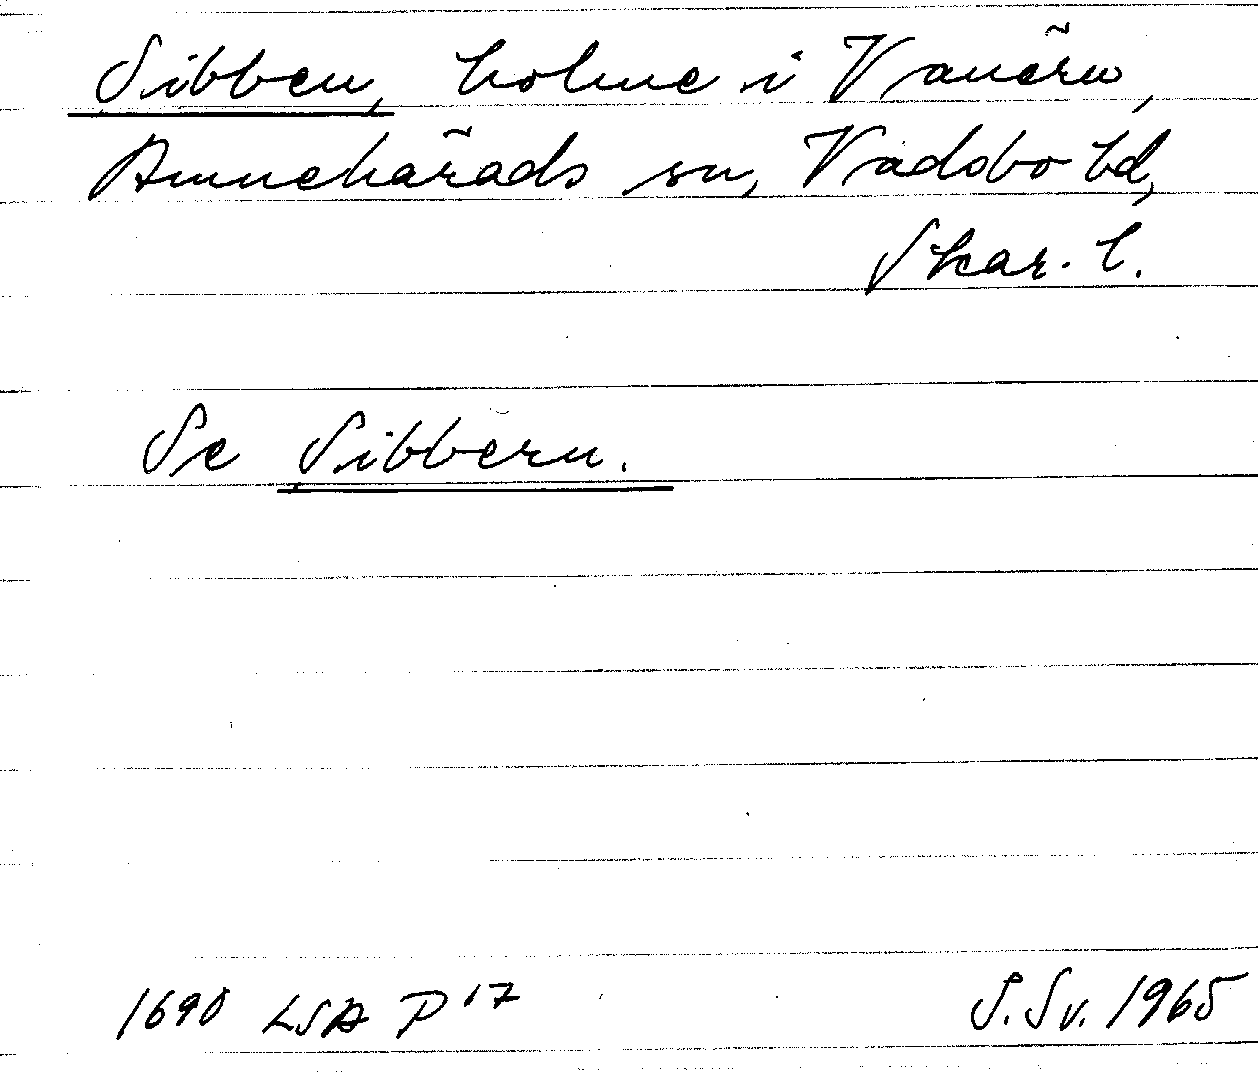 Sibben, holme i Vänern,
Amnehärads sn, Vadsbo hd,
Skar. l.
Se Sibbern.
1690 LSA P 17
S. Sv. 1965